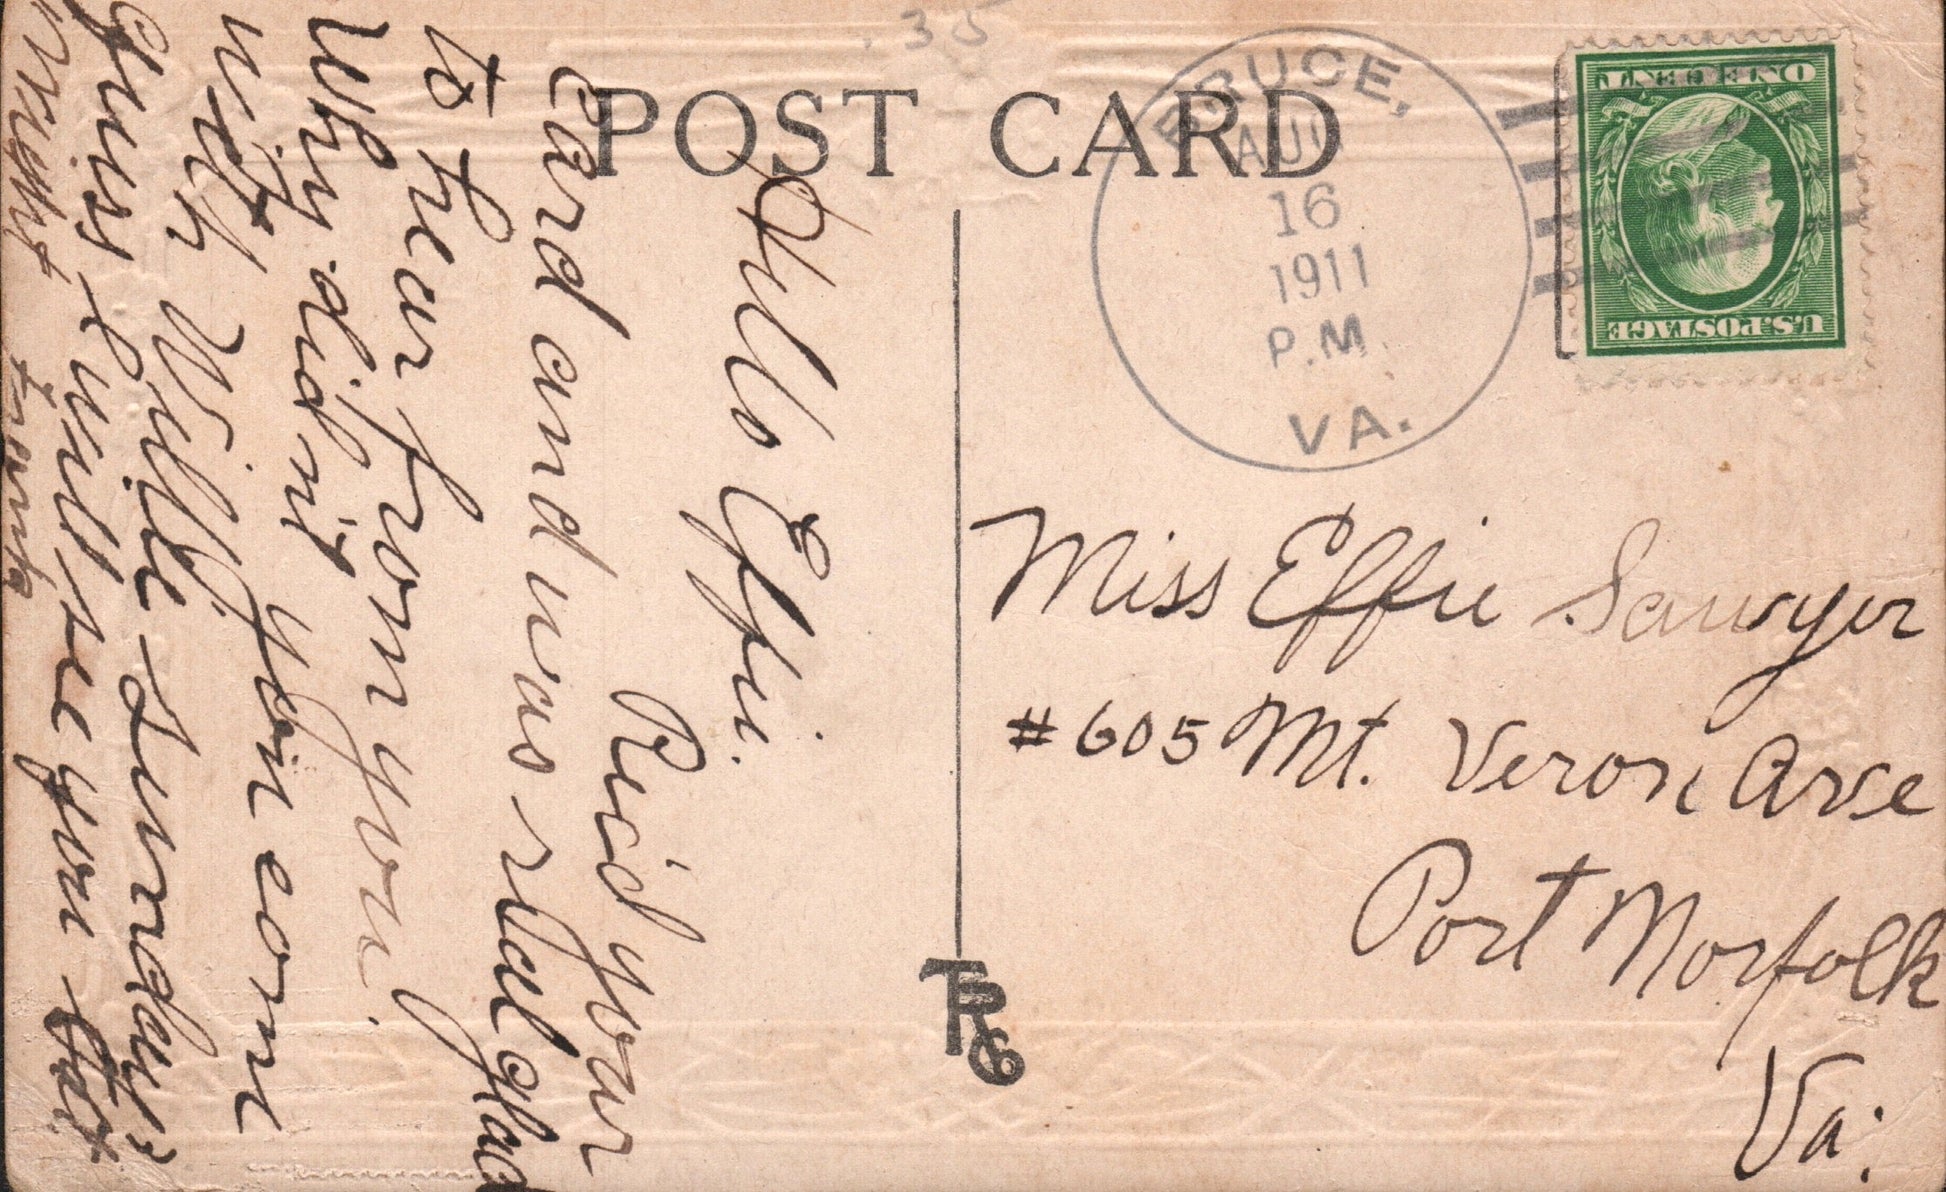 .35
POST CARD
BRUCE,
AUG
16
1911
P.M.
VA.
ONE CENT
U.S. POSTAGE
Hello Effie.
Rec'd your
card and was real glad
to hear from you.
Why didnt you come
with Willie Sunday?
Guess I will see you Sat
night,
Miss Effie Sawyer
#605 Mt. Veron Ave
Port Norfolk
Va.